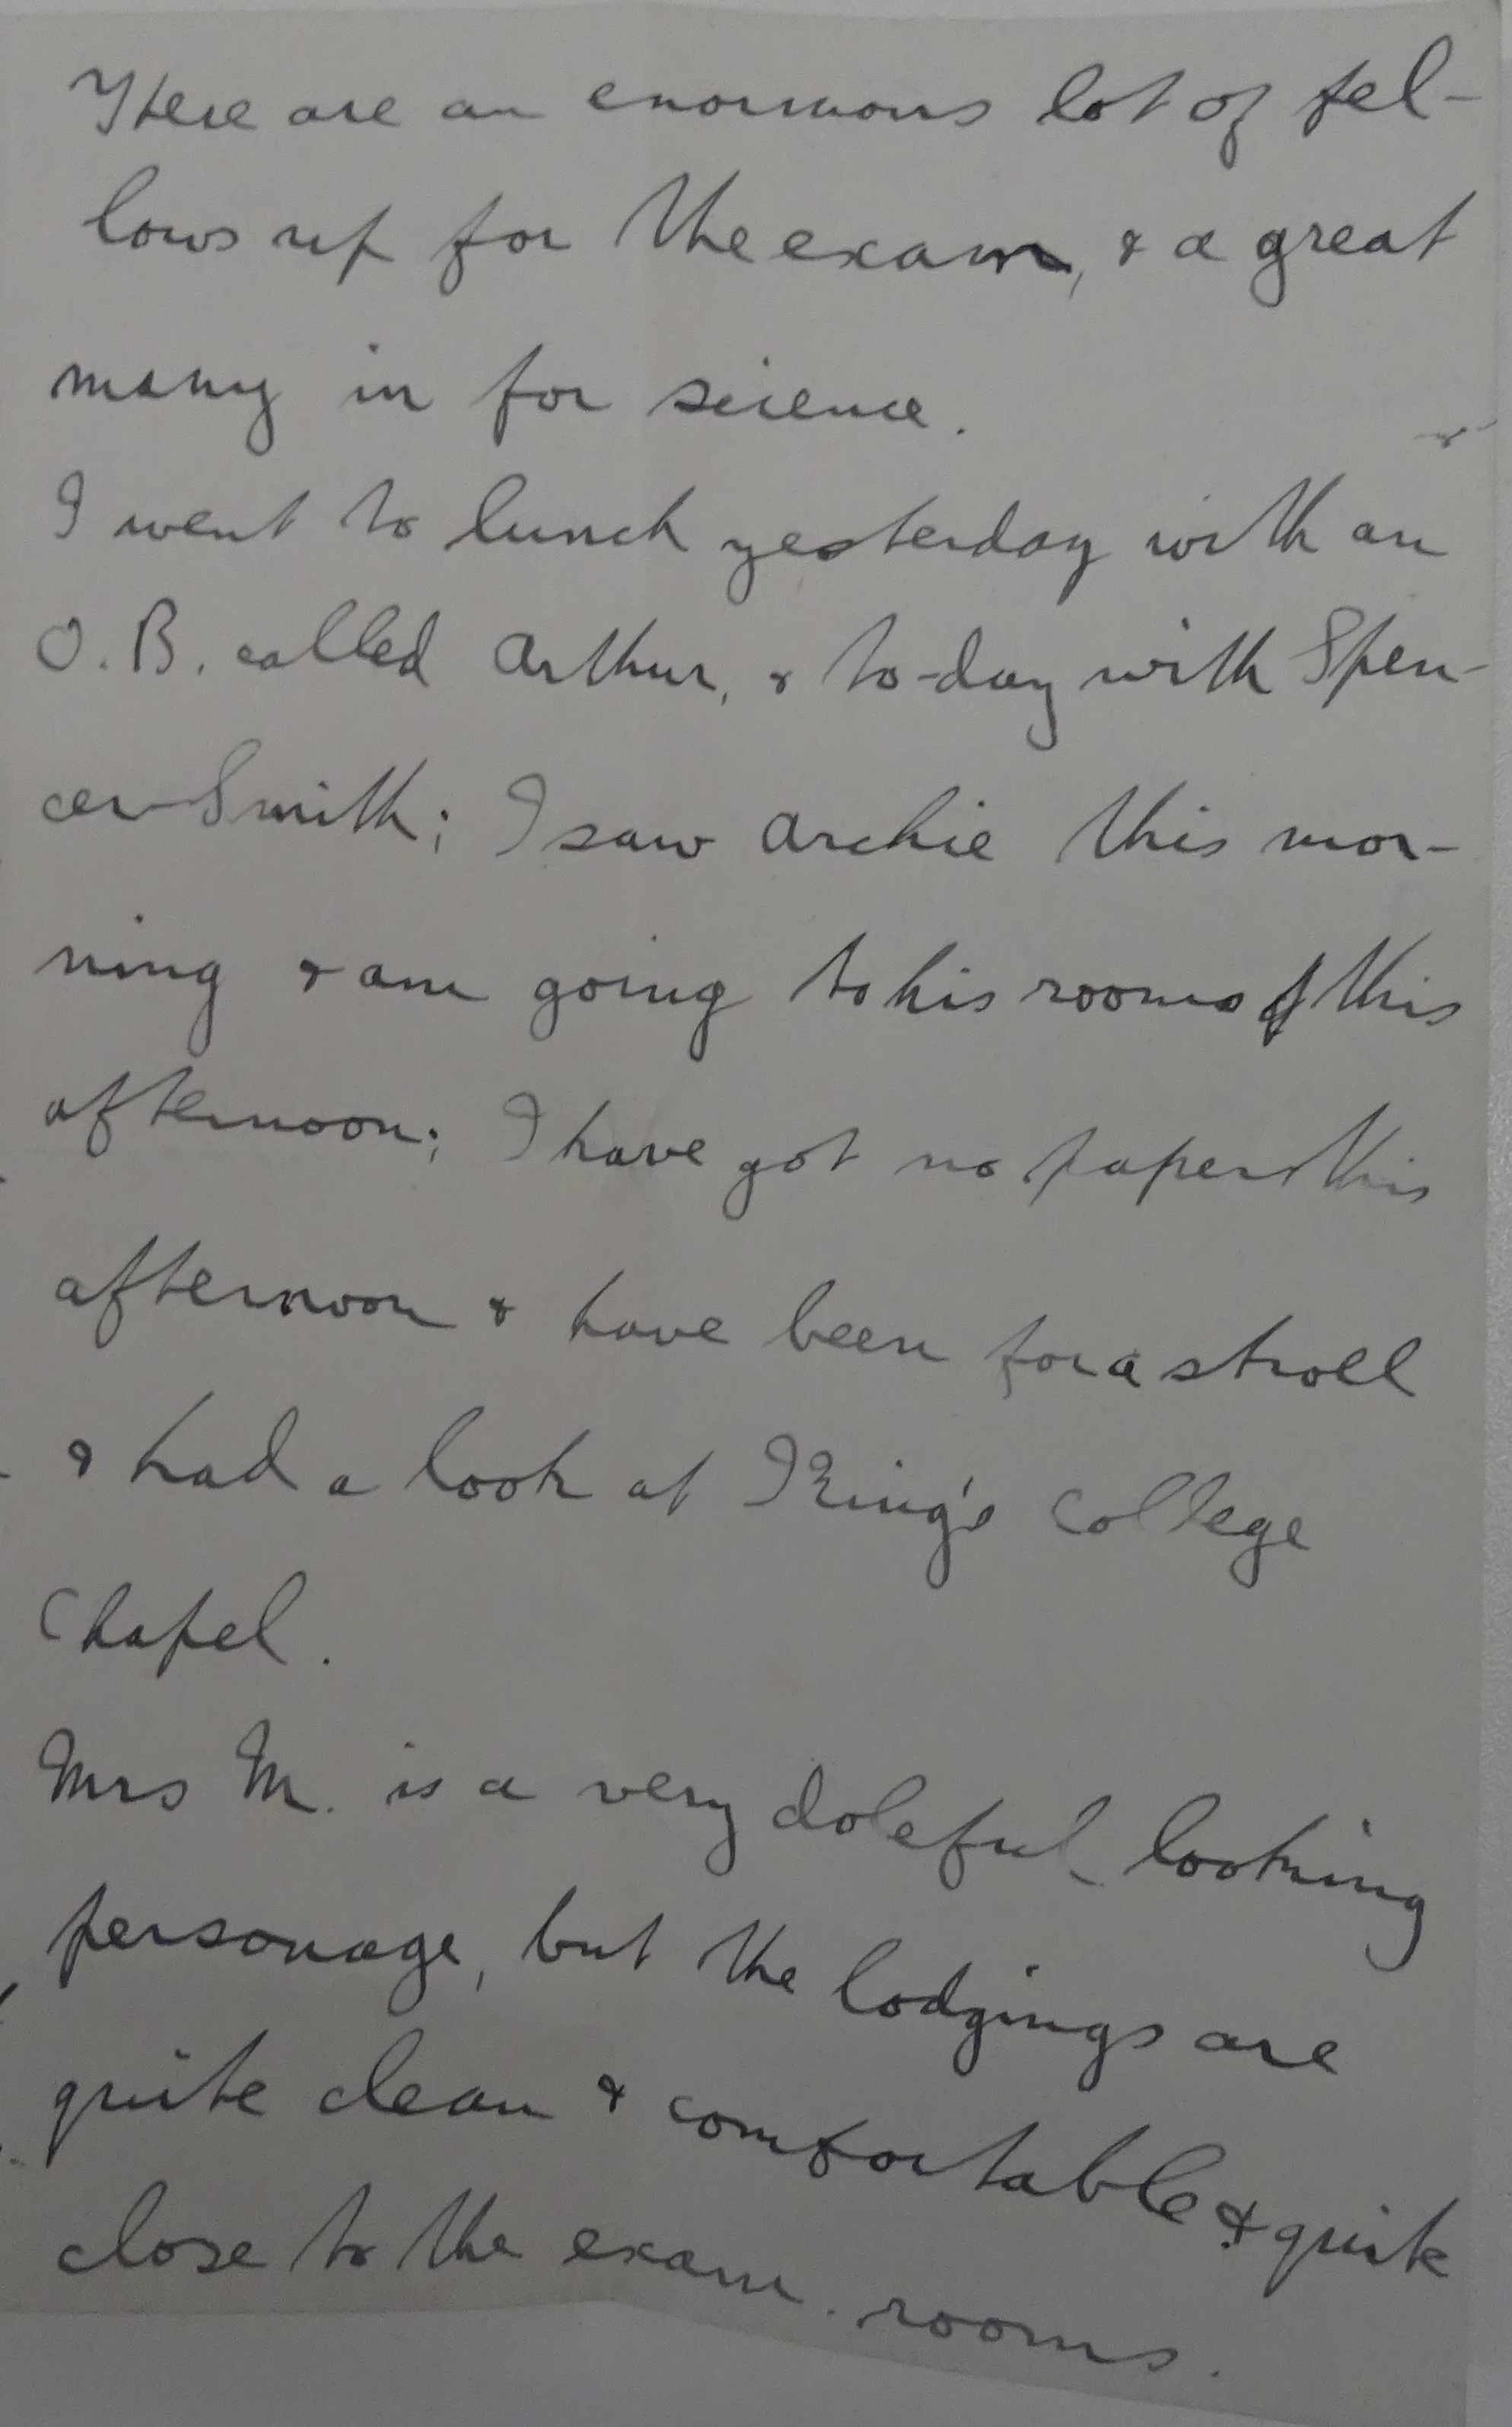 There are an enormous lot of fel-
lows up for the exam, & a great
many in for science.
I went to lunch yesterday with an
O.B. called Arthur, & to-day with Spen-
cer-Smith; I saw Archie this mor-
ning & am going to his rooms this
afternoon; I have got no paper this
afternoon & have been for a stroll
& had a look at King's College
Chapel.
Mrs M. is a very doleful looking
personage, but the lodgings are
quite clean & comfortable & quite
close to the exam. rooms.